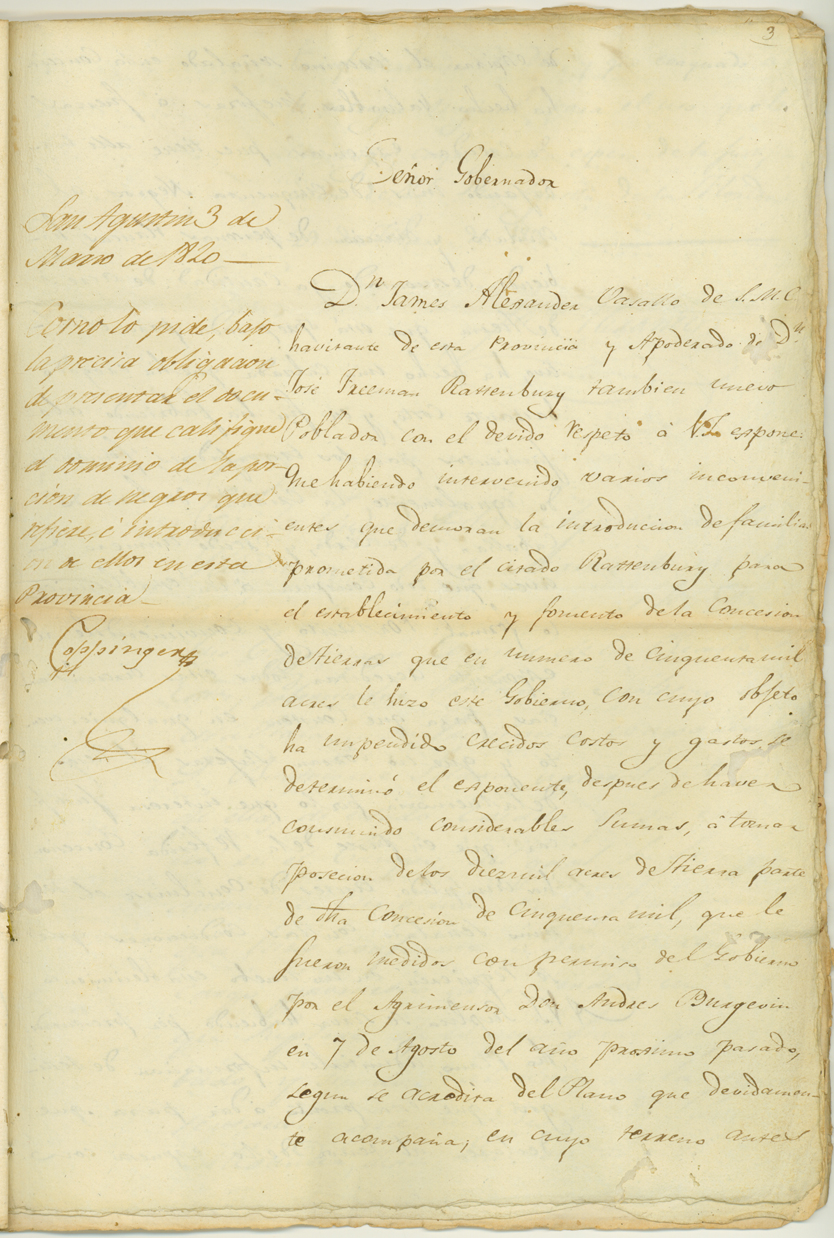 3
Señor Gobernador
San Agustin 3 de
Marzo de 1820
Como lo pide, bajo
la precisa obligacion
de presentar el docu-
mento que califique
el dominio de la por-
cion de negros que
refiere, é introducci-
on de ellos en esta
Provincia
Coppinger
Dn. James Alexander Vasallo de S.M.C.
havitante de esta Provincia y Apoderado de Dn.
José Freeman Rattenbury tambien nuevo
Poblador con el devido respeto â V.S. espone:
Que habiendo intervenido varios inconveni-
entes que demoran la introducion de familias
prometida por el citado Rattenbury para
el establecimiento y fomento de la Concesion
de tierras que en numero de cinquenta mil
acres le hizo este Gobierno, con cuyo objeto
ha impendido crecidos costos y gastos, se
determinó el esponente, despues de haver
consumido considerables sumas, â tomar
posecion de los diez mil acres de tierra parte
de dha Concesion de Cinquenta mil, que le
fueron medidos con permiso del Gobierno
por el Agrimensor Don Andres Burgevin
en 7 de Agosto del año prosimo pasado,
segun se acredita del Plano que devidamen-
te acompaña; en cuyo terreno antes